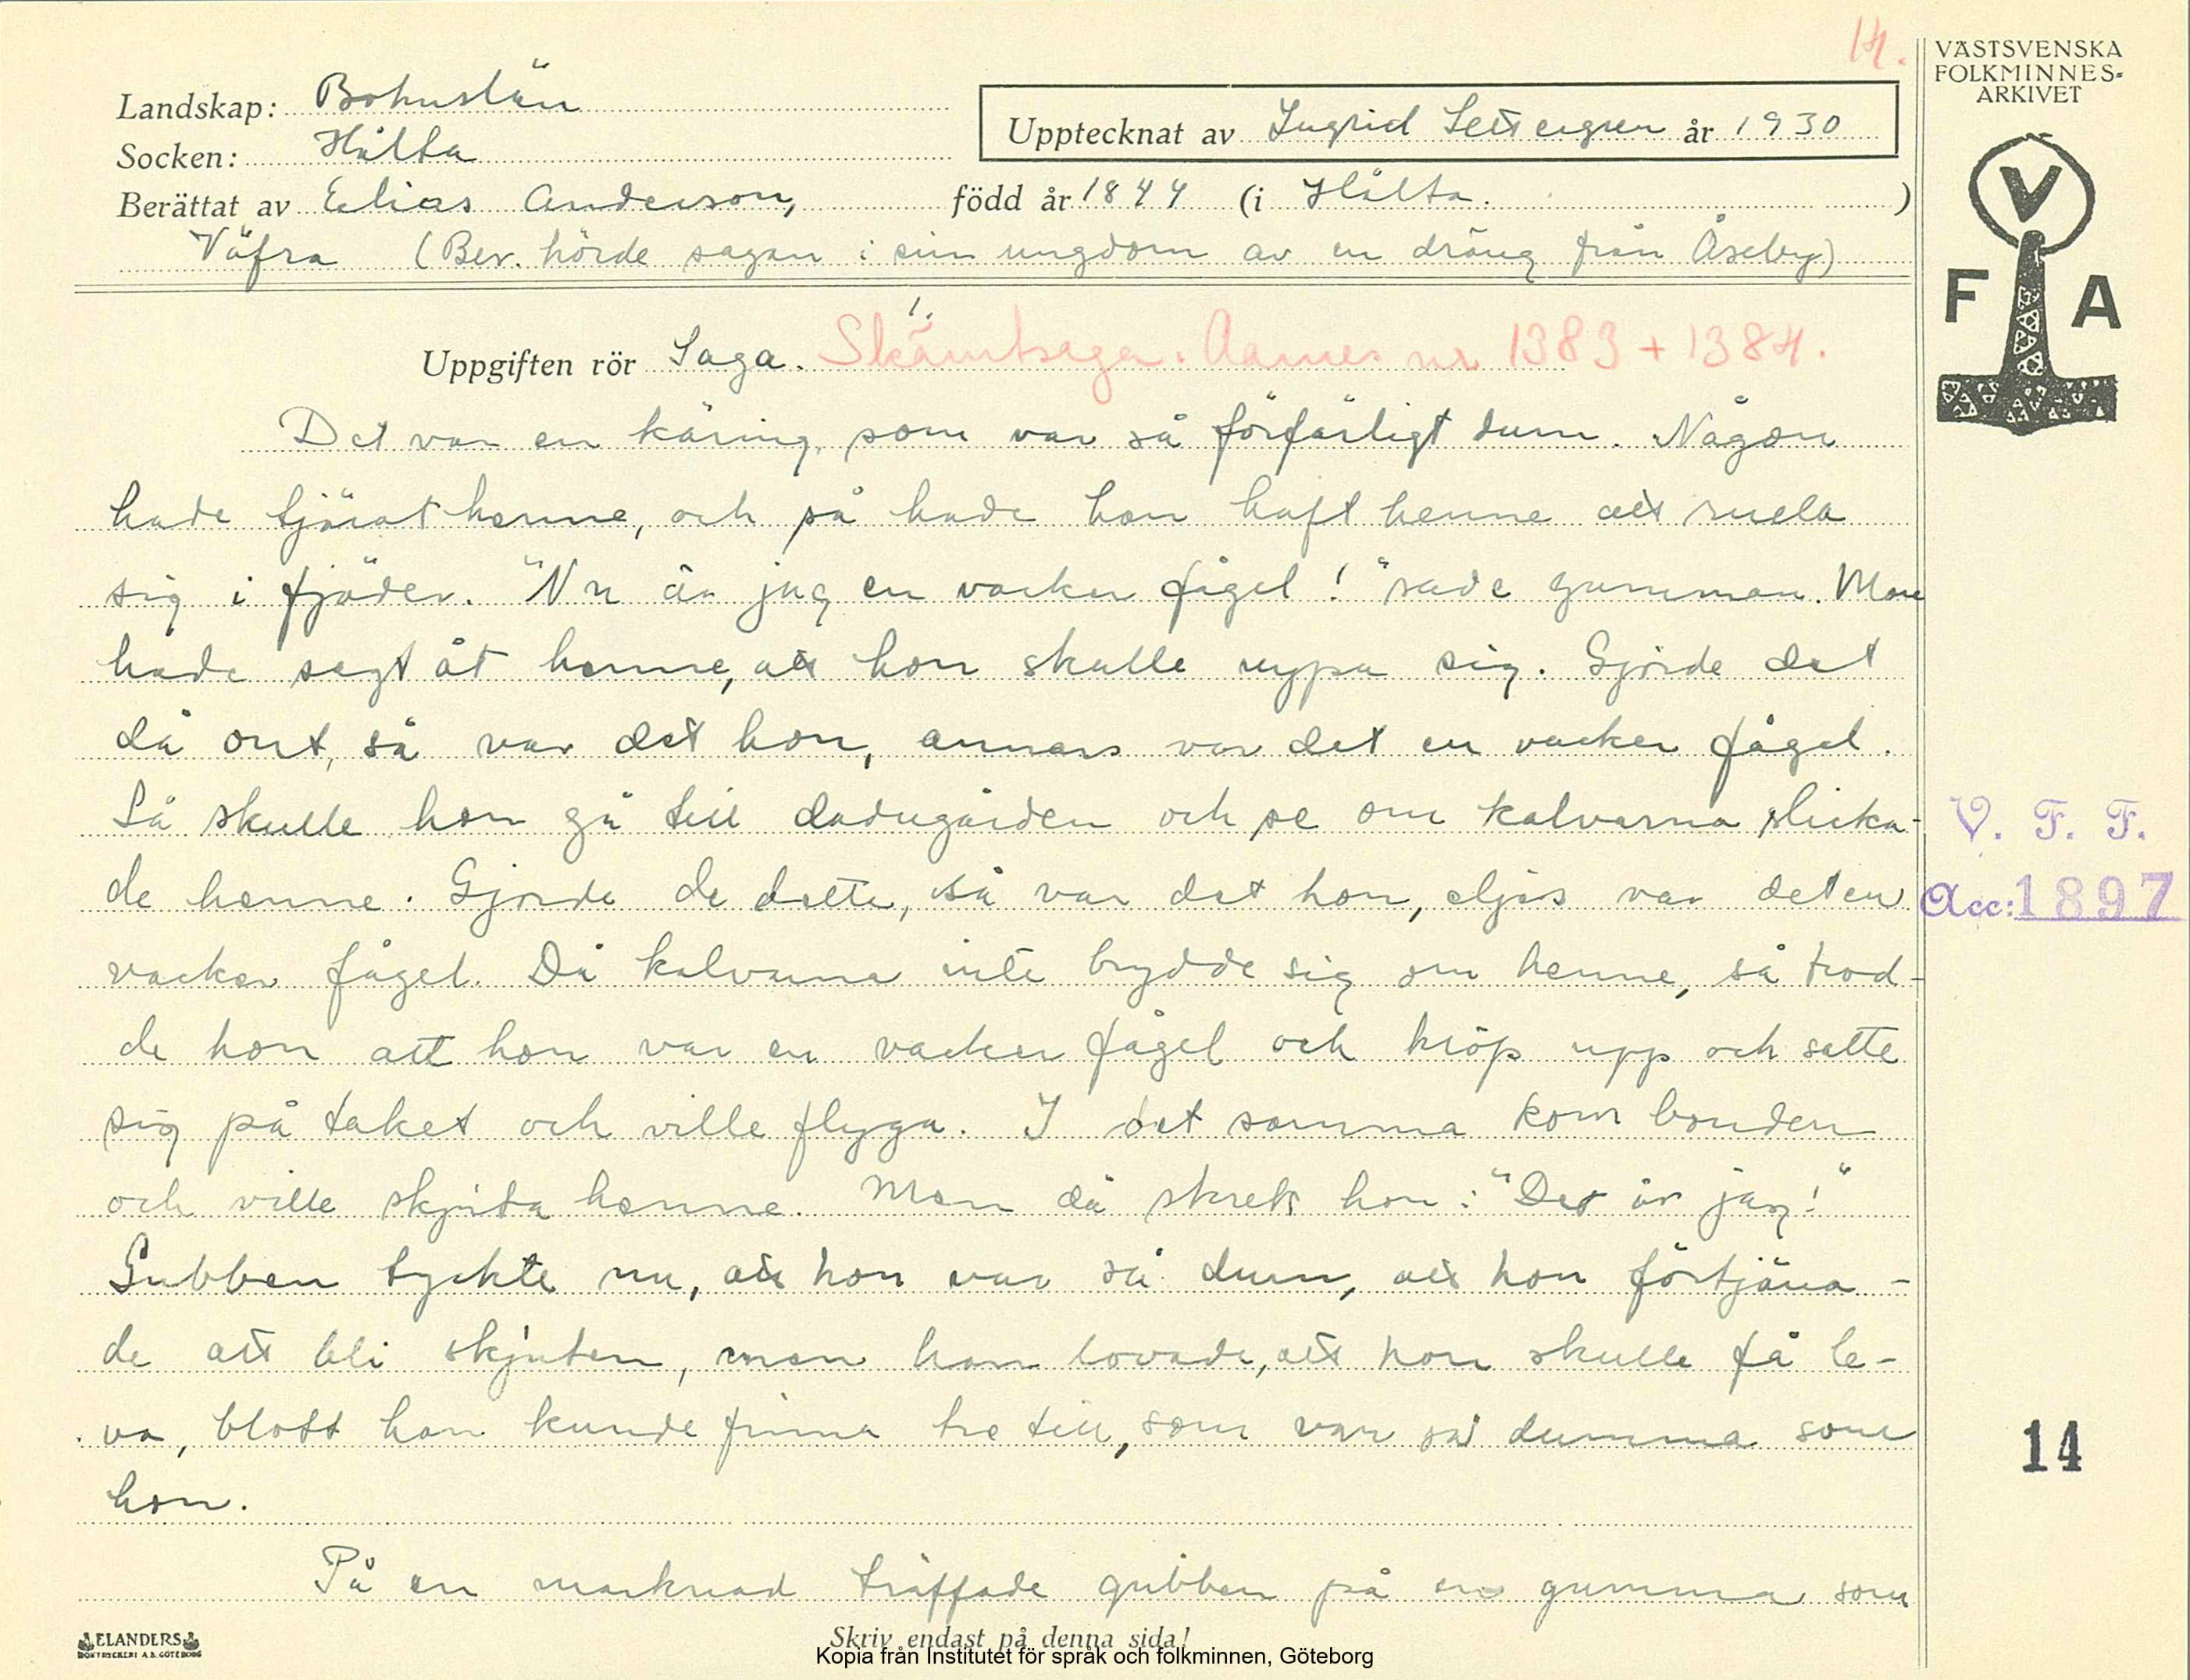 14.
VÄSTSVENSKA
FOLKMINNES-
ARKIVET
Landskap: Bohuslän
Upptecknat av Ingrid Settergren år 1930
Socken: Hålta
Berättat av Elias Anderson, född år 1844 (i Hålta. )
Väfra (Ber. hörde sagan i sin ungdom av en dräng från Åseby)
V
F A
1.
Uppgiften rör Saga. Skämtsaga. Aarnes nr 1383 + 1384.
Det var en käring, som var så förfärligt dum. Någon
hade tjärat henne, och så hade han haft henne att rulla
sig i fjäder. "Nu är jag en vacker fågel!" sade gumman. Man
hade sagt åt henne, att hon skulle nypa sig. Gjorde det
då ont, så var det hon, annars var det en vacker fågel.
Så skulle hon gå till ladugården och se om kalvarna slicka-
de henne. Gjorde de detta, så var det hon, eljes var det en
vacker fågel. Då kalvarna inte brydde sig om henne, så trod-
de hon att hon var en vacker fågel och kröp upp och satte
sig på taket och ville flyga. I det samma kom bonden
och ville skjuta henne. Men då skrek hon: "Det är jag!"
Gubben tyckte nu, att hon var så dum, att hon förtjäna-
de att bli skjuten, men han lovade, att hon skulle få le-
va, blott han kunde finna tre till, som var så dumma som
hon.
På en marknad träffade gubben på en gumma som
V. F. F.
Acc: 1897
14
ELANDERS
BOKTRYCKERI A.B. GÖTEBORG
Skriv endast på denna sida!
Kopia från Institutet för språk och folkminnen, Göteborg